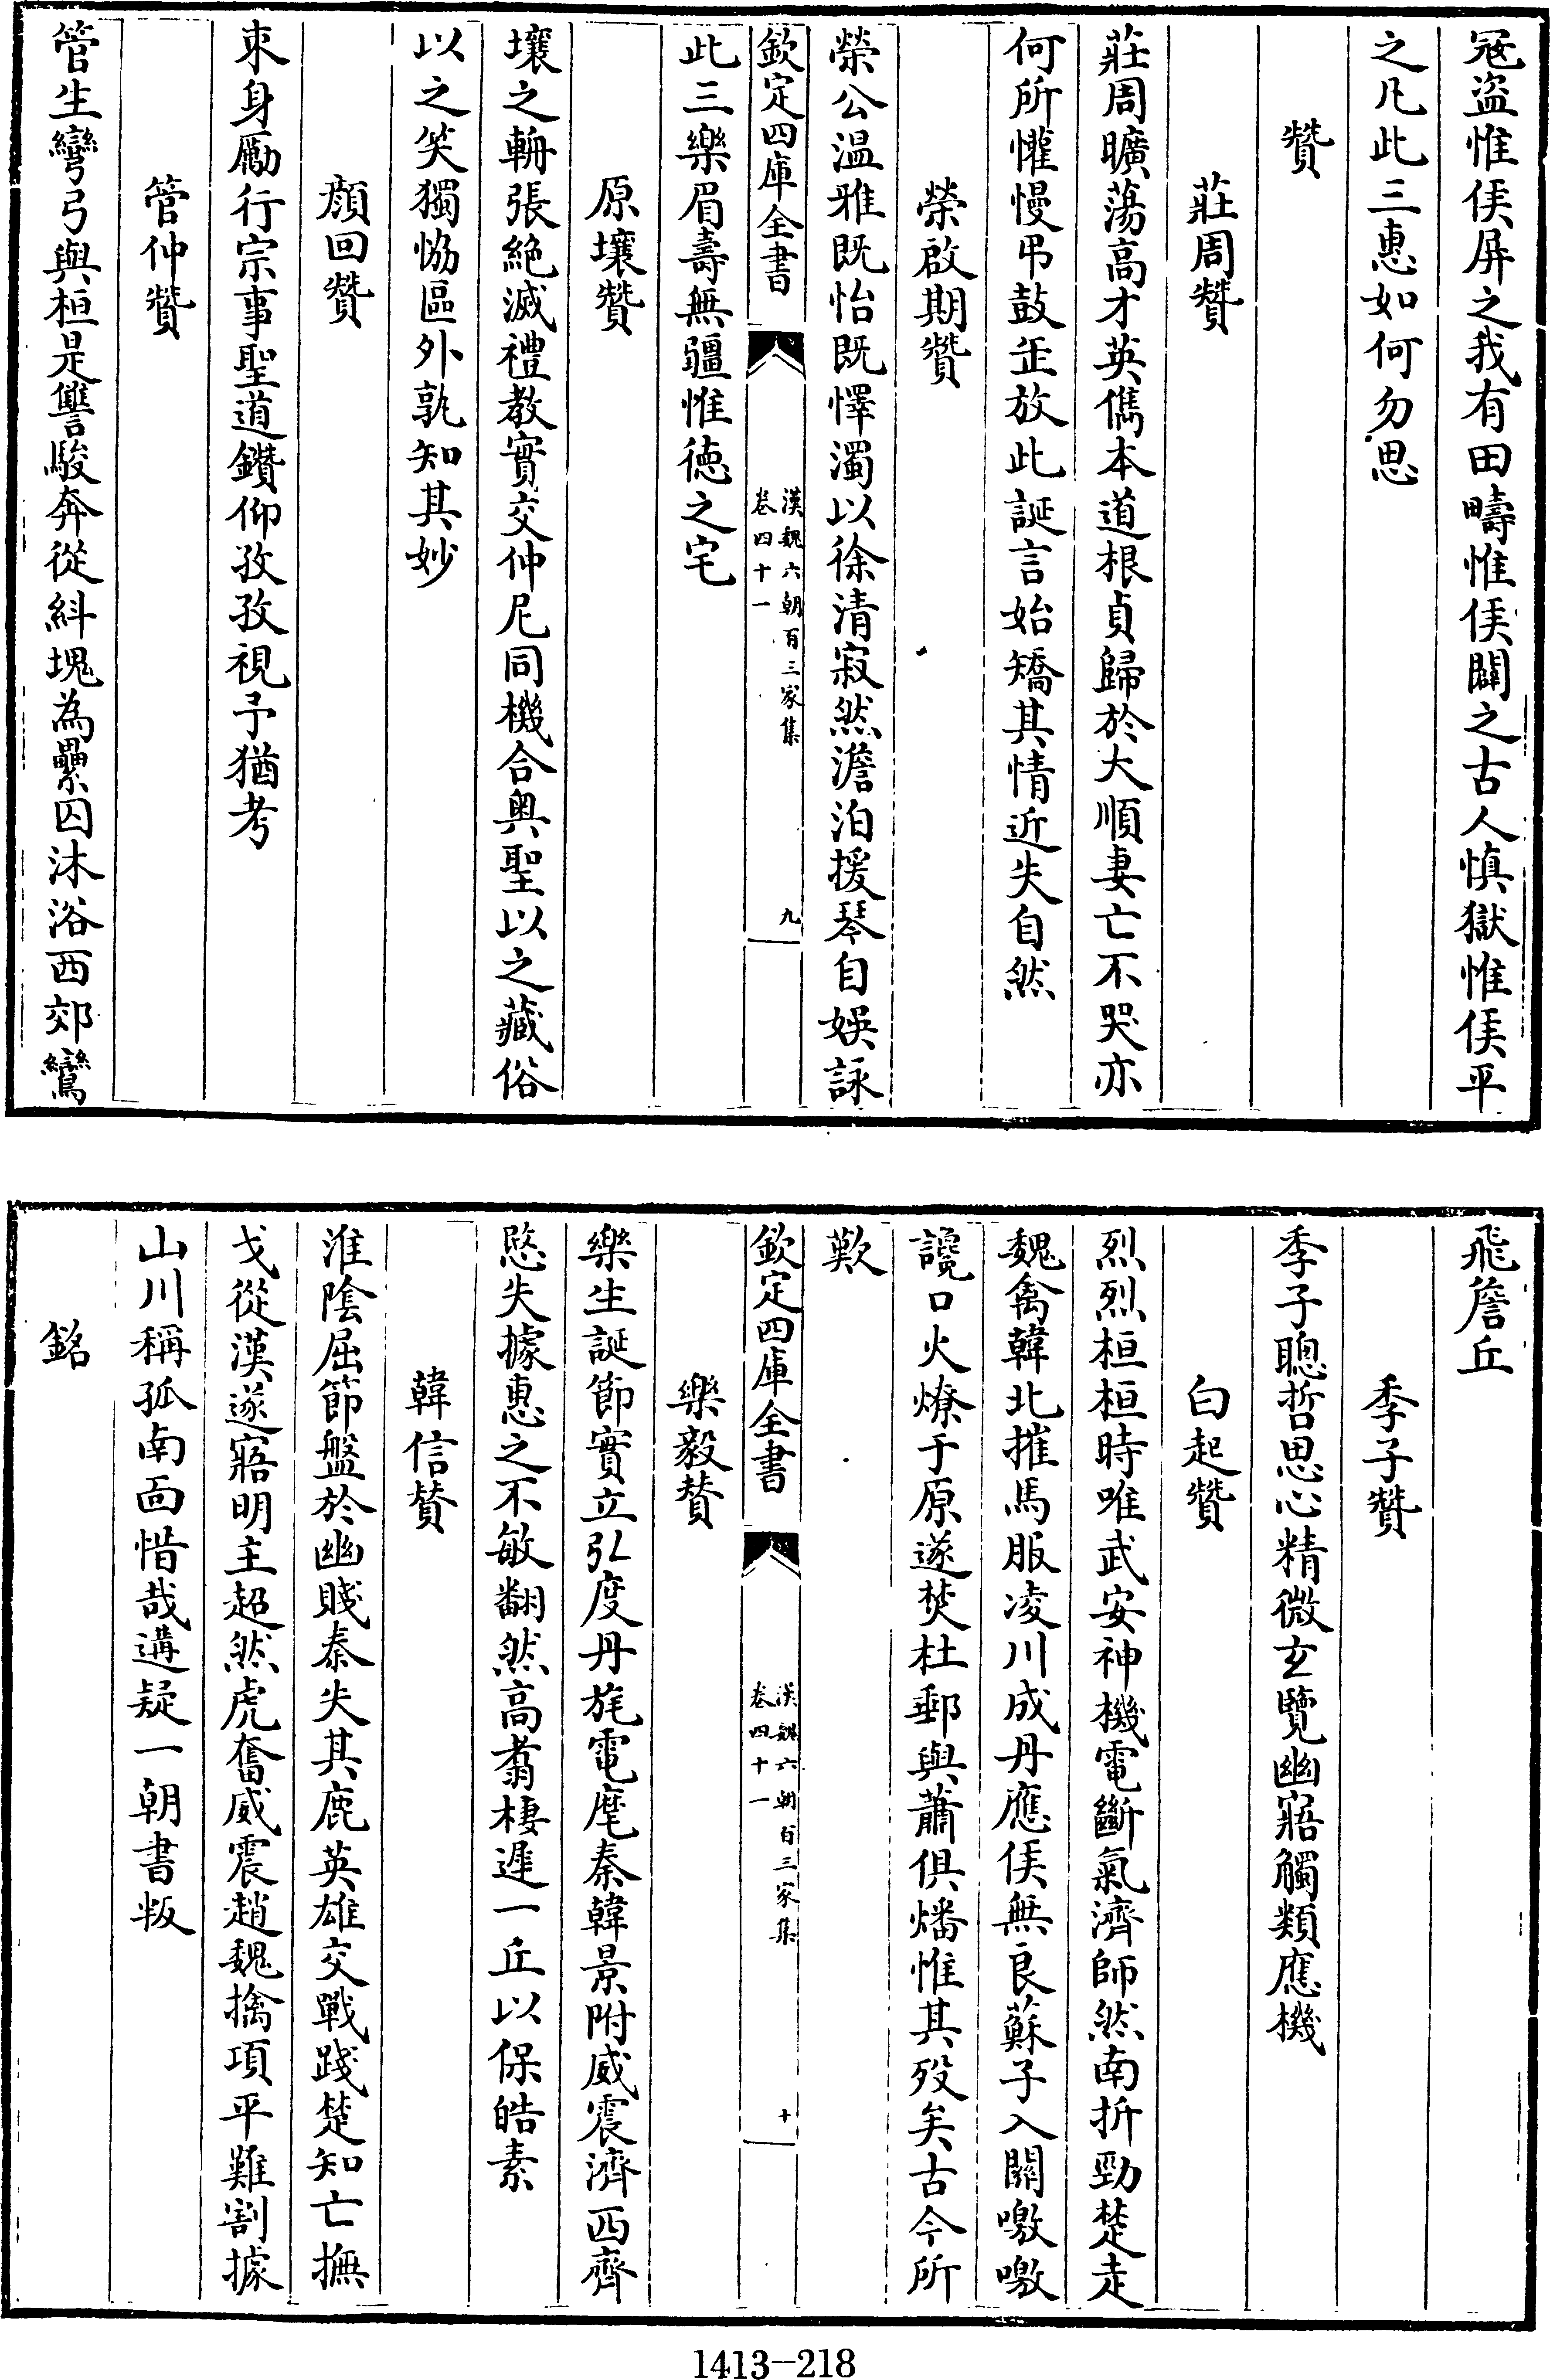 冦盗惟侯屏之我有田疇惟侯闢之古人慎獄惟侯平
之凡此三惠如何勿思
贊
莊周贊
莊周曠蕩高才英儁本道根貞歸於大順妻亡不哭亦
何所懽慢弔鼓缶放此誕言始矯其情近失自然
榮啟期贊
榮公温雅既怡既懌濁以徐清寂然澹泊援琴自娛詠
欽定四庫全書
漢魏六朝百三家集
卷四十一
九
此三樂眉壽無疆惟徳之宅
原壤贊
壤之輈張絶滅禮教實交仲尼同機合奥聖以之藏俗
以之笑獨恊區外孰知其妙
顔回贊
束身勵行宗事聖道鑽仰孜孜視予猶考
管仲贊
管生彎弓與桓是讐駿奔從糾塊為纍囚沐浴西郊鸞
飛詹丘
季子贊
季子聰哲思心精微玄覽幽寤觸類應機
白起贊
烈烈桓桓時唯武安神機電斷氣濟師然南折勁楚走
魏禽韓北摧馬服凌川成丹應侯無良蘇子入關噭噭
讒口火燎于原遂焚杜郵與蕭俱燔惟其殁矣古今所
歎
欽定四庫全書
漢魏六朝百三家集
卷四十一
十
樂毅賛
樂生誕節實立弘度丹旄電麾秦韓景附威震濟西齊
愍失據惠之不敏翻然高翥棲遲一丘以保皓素
韓信賛
淮陰屈節盤於幽賤秦失其鹿英雄交戰踐楚知亡撫
戈從漢遂寤明主超然虎奮威震趙魏擒項平難割據
山川稱孤南面惜哉遘疑一朝書叛
銘
1413—218